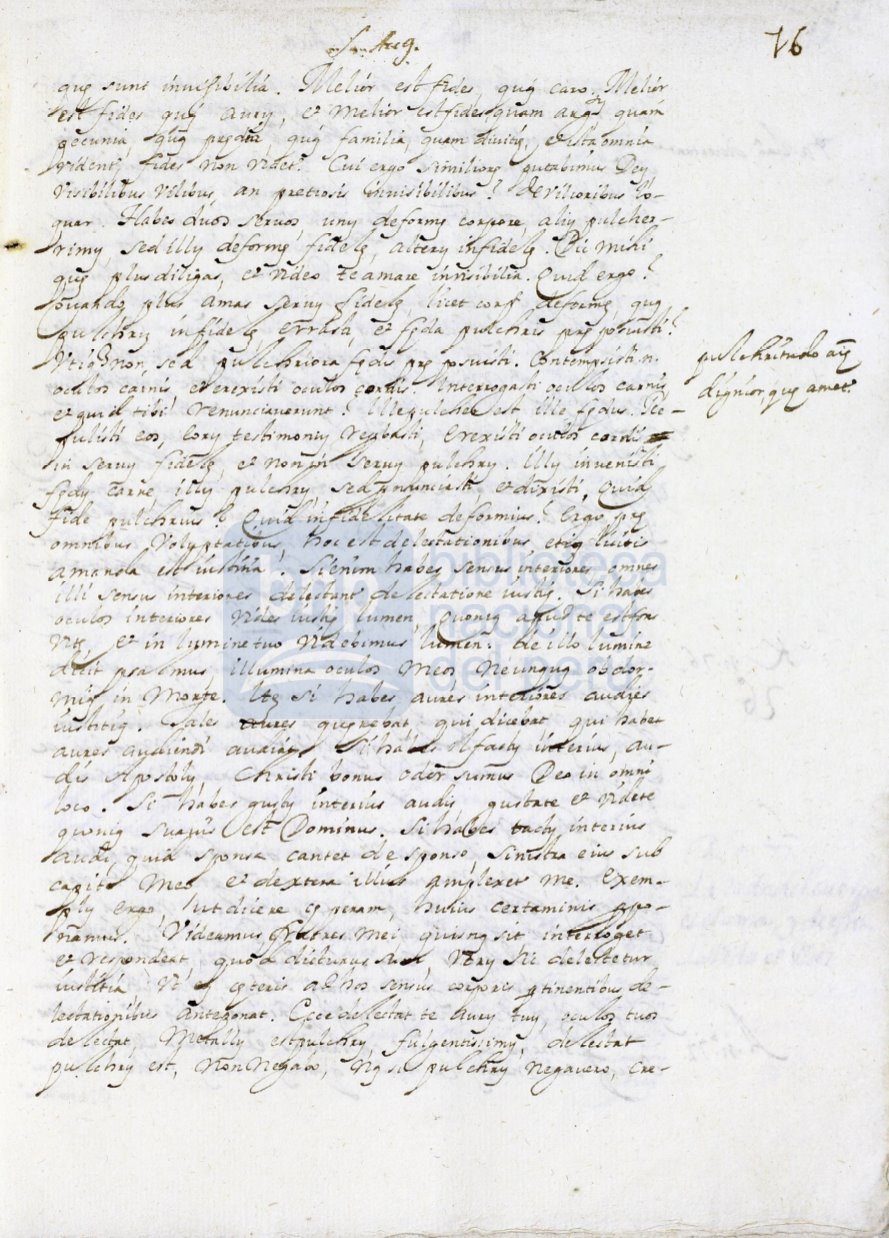 S. Aug.
76
quę sunt invisibilia. Melior est fides, quą caro. Melior
est fides quą aurų, et melior est fides quam argų quam
pecunia, quą prędia, quą familia, quam divitię, et ista omnia
videntᷣ fides non videtᷣ. Cui ergo similiorę putabimus Deų
visibilibus vilibus, an pretiosis invisibilibus? de vilioribus lo-
quar. Habes duos servos, unų deformę corpore, alių pulcher-
rimų, sed illų deformę fidelę, alterų infidelę. Dic mihi
quę plus diligas, et video te amare invisibilia. Quid ergo?
quando plus amas servų fidelę, licet corpᷣ deformę quą
pulchrų infidelę, errasti, et fęda pulchris prę posuisti?
Vtiqȝ non, sed pulchriora fędis prę posuisti. Contempsisti n.
oculos carnis, et erexisti oculos cordis. Interrogasti oculos carnis
et quid tibi renunciaverunt? Ille pulcher est ille fędus. Re-
pulisti eos, eorų testimonių reprobasti, erexisti oculos cordis
in servų fidelę, et non in servų pulchrų. Illų invenisti
fędų carne, illų pulchrų, sed pnunciasti, et dixisti, Quid
fide pulchrius? Quid infidelitate deformius? Ergo prę
omnibus voluptatibus, hoc est delectationibus etią licitis
amanda est iustitia. Si enim habes sensus interiores, omnes
illi sensus interiores delectant delectatione iustitię. Si habes
oculos interiores vides iustitię lumen, quonią apud te est fons
vitę, et in lumine tuo videbimus lumen. De illo lumine
dicit psalmus, illumina oculos meos ne unquą obdor-
mią in morte. Itę si habes aures interiores audies
iustitią. Tales aures quęrebat, qui dicebat, qui habet
aures audiendi audiat. Si habes olfactų interius, au-
dis Apostolų Christi bonus odor sumus Deo in omni
loco. Si habes gustų interius audis gustate et videte
quonią suavis est Dominus. Si habes tactų interius
audi, quid sponsa cantet de sponso, sinistra eius sub
capite meo et dextera illius amplexetᷣ me. Exem-
plų ergo, ut dicere cęperam, huius certaminis ppo-
namus. Videamus, fratres mei, quisnā sit interroget
et respondeat, quod dicturus sum utrų sic delectetur
iustitia ut et cęteris ad hos sensus corporis ptinentibus de-
lectationibus anteponat. Ecce delectat te aurų tuų, oculos tuos
delectat, metallų est pulchrų, fulgentissimų, delectat
pulchrų est, non negabo, nā si pulchrų negavero, cre-
pulchritudo aię
dignior, quę ametᷣ.